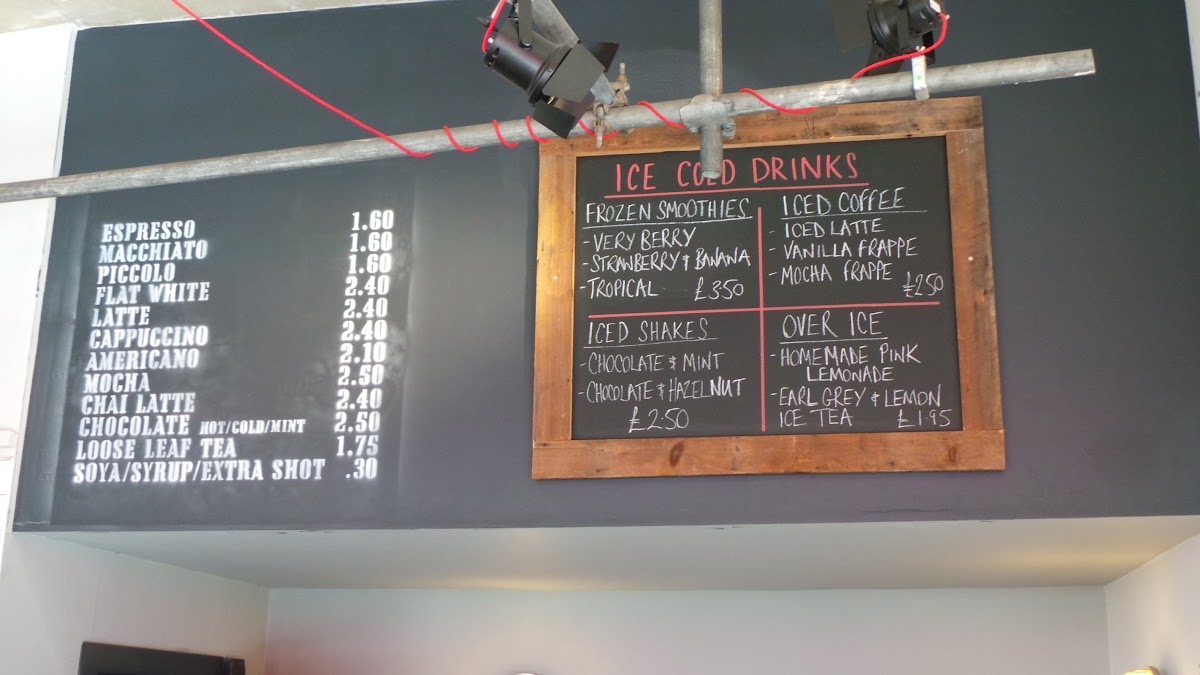 ESPRESSO 1.60
MACCHIATO 1.60
PICCOLO 1.60
FLAT WHITE 2.40
LATTE 2.40
CAPPUCCINO 2.40
AMERICANO 2.10
MOCHA 2.50
CHAI LATTE 2.40
CHOCOLATE HOT/COLD/MINT 2.50
LOOSE LEAF TEA 1.75
SOYA/SYRUP/EXTRA SHOT .30
ICE COLD DRINKS
FROZEN SMOOTHIES
- VERY BERRY
- STRAWBERRY & BANANA
- TROPICAL £3.50
ICED COFFEE
- ICED LATTE
- VANILLA FRAPPE
- MOCHA FRAPPE £2.50
ICED SHAKES
- CHOCOLATE & MINT
- CHOCOLATE & HAZELNUT
£2.50
OVER ICE
- HOMEMADE PINK
LEMONADE
- EARL GREY & LEMON
ICE TEA £1.95